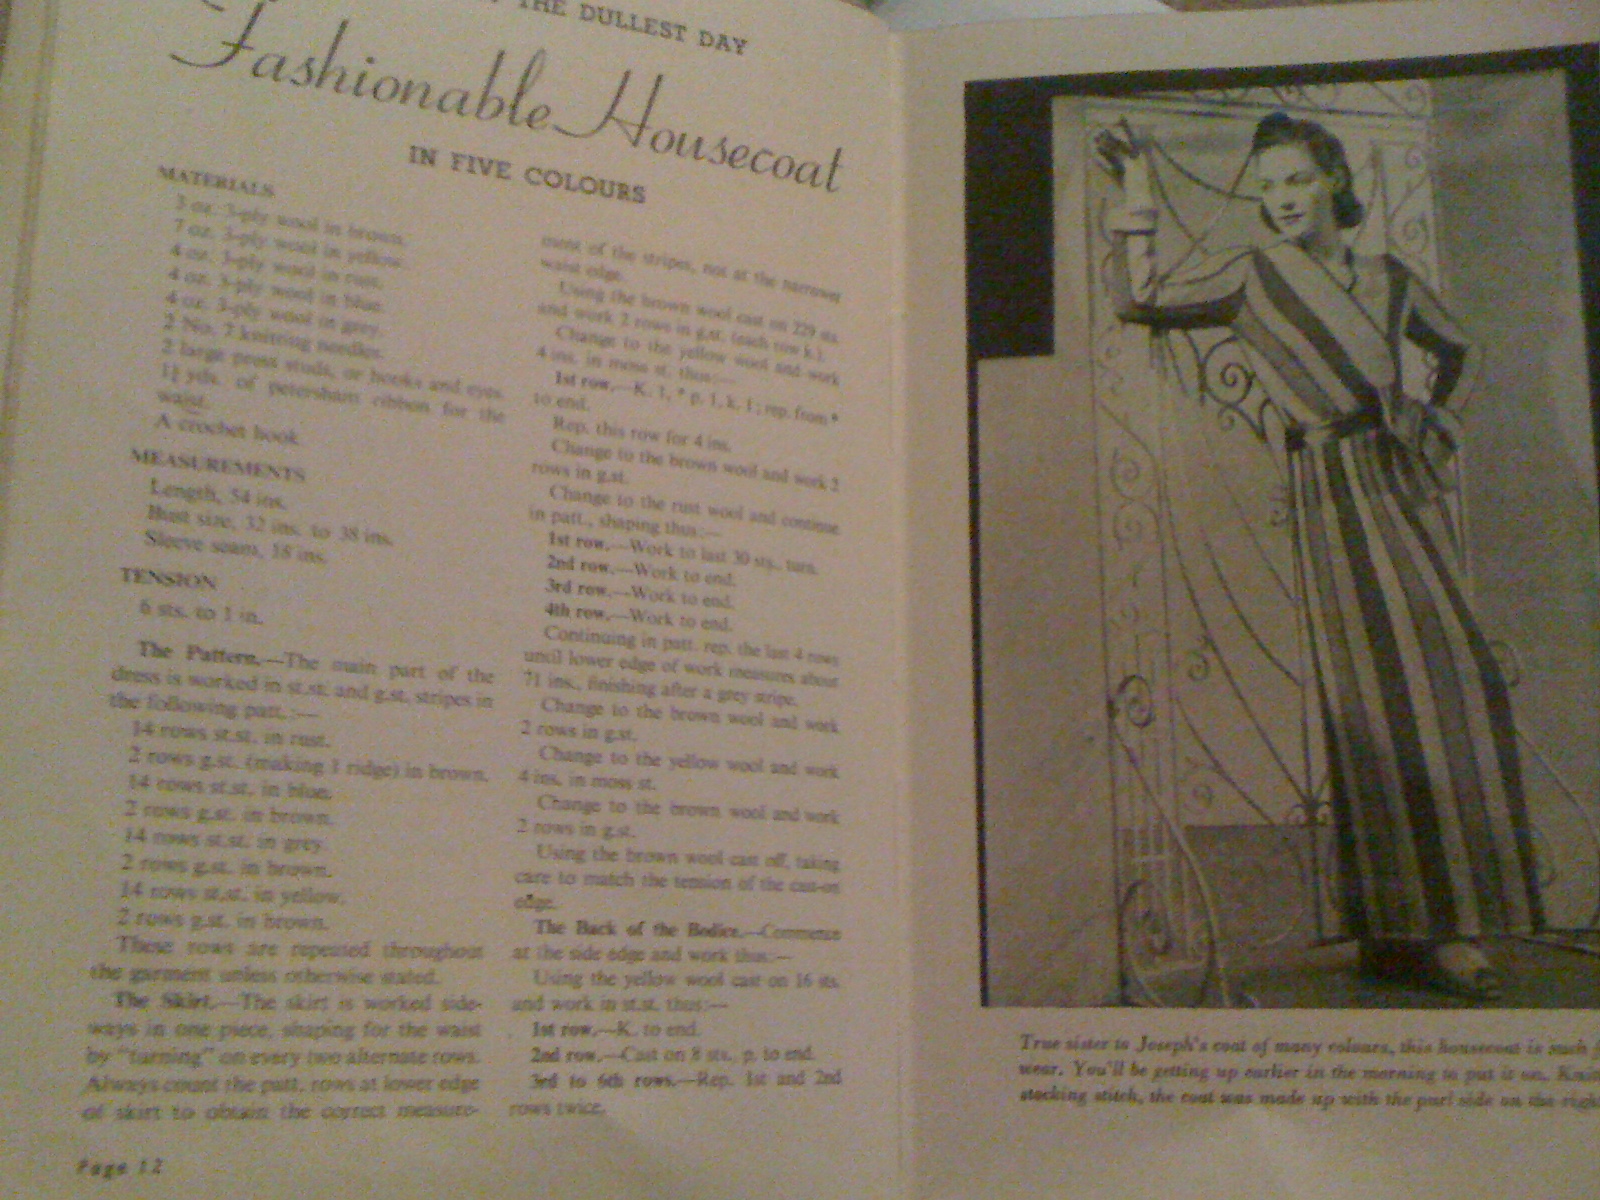 THE DULLEST DAY
Fashionable Housecoat
IN FIVE COLOURS
MATERIALS
3 oz. 3-ply wool in brown.
7 oz. 3-ply wool in yellow.
4 oz. 3-ply wool in rust.
4 oz. 3-ply wool in blue.
4 oz. 3-ply wool in grey.
2 No. 7 knitting needles.
2 large press studs, or hooks and eyes.
1½ yds. of petersham ribbon for the
waist.
A crochet hook
MEASUREMENTS
Length, 54 ins.
Bust size, 32 ins. to 38 ins.
Sleeve seam, 18 ins.
TENSION
6 sts. to 1 in.
The Pattern.—The main part of the
dress is worked in st.st. and g.st. stripes in
the following patt.:—
14 rows st.st. in rust.
2 rows g.st. (making 1 ridge) in brown.
14 rows st.st. in blue.
2 rows g.st. in brown.
14 rows st.st. in grey.
2 rows g.st. in brown.
14 rows st.st. in yellow.
2 rows g.st. in brown.
These rows are repeated throughout
the garment unless otherwise stated.
The Skirt.—The skirt is worked side-
ways in one piece, shaping for the waist
by "turning" on every two alternate rows.
Always count the patt. rows at lower edge
of skirt to obtain the correct measure-
Page 12
ment of the stripes, not at the narrower
waist edge.
Using the brown wool cast on 229 sts.
and work 2 rows in g.st. (each row k.).
Change to the yellow wool and work
4 ins. in moss st. thus:—
1st row.—K. 1, * p. 1, k. 1; rep. from *
to end.
Rep. this row for 4 ins.
Change to the brown wool and work 2
rows in g.st.
Change to the rust wool and continue
in patt., shaping thus:—
1st row.—Work to last 30 sts., turn.
2nd row.—Work to end.
3rd row.—Work to end.
4th row.—Work to end.
Continuing in patt. rep. the last 4 rows
until lower edge of work measures about
71 ins., finishing after a grey stripe.
Change to the brown wool and work
2 rows in g.st.
Change to the yellow wool and work
4 ins. in moss st.
Change to the brown wool and work
2 rows in g.st.
Using the brown wool cast off, taking
care to match the tension of the cast-on
edge.
The Back of the Bodice.—Commence
at the side edge and work thus:—
Using the yellow wool cast on 16 sts.
and work in st.st. thus:—
1st row.—K. to end.
2nd row.—Cast on 8 sts., p. to end.
3rd to 6th rows.—Rep. 1st and 2nd
rows twice.
True sister to Joseph's coat of many colours, this housecoat is such
wear. You'll be getting up earlier in the morning to put it on.
stocking stitch, the coat was made up with the purl side on the right